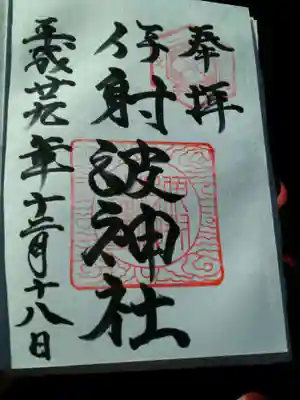 奉拝
伊射波神社
平成廿九年十二月十八日